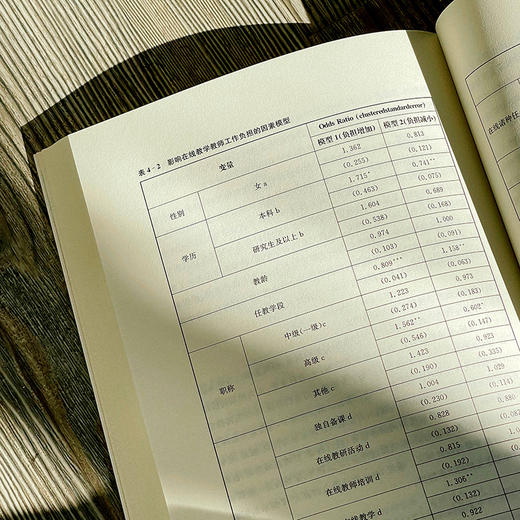 表 4-2 影响在线教学教师工作负担的因素模型
变量 Odds Ratio (clusteredstandarderror)
模型 1(负担增加) 模型 2(负担减小)
性别 女 a 1.362 0.813
(0.255) (0.121)
学历 本科 b 1.715* 0.741**
(0.463) (0.075)
研究生及以上 b 1.604 0.689
(0.538) (0.168)
教龄 0.974 1.000
(0.103) (0.091)
任教学段 0.809*** 1.158**
(0.041) (0.063)
职称 中级(一级)c 1.223 0.973
(0.274) (0.183)
高级 c 1.562** 0.602*
(0.546) (0.147)
其他 c 1.423 0.923
(0.190) (0.333)
独自备课 d 1.004 1.029
(0.230) (0.114
在线教研活动 d 0.828 0.880
(0.132) (0.08
在线教师培训 d 0.815
(0.192)
线教学 d 1.306**
(0.132)
0.922
在线诸种任